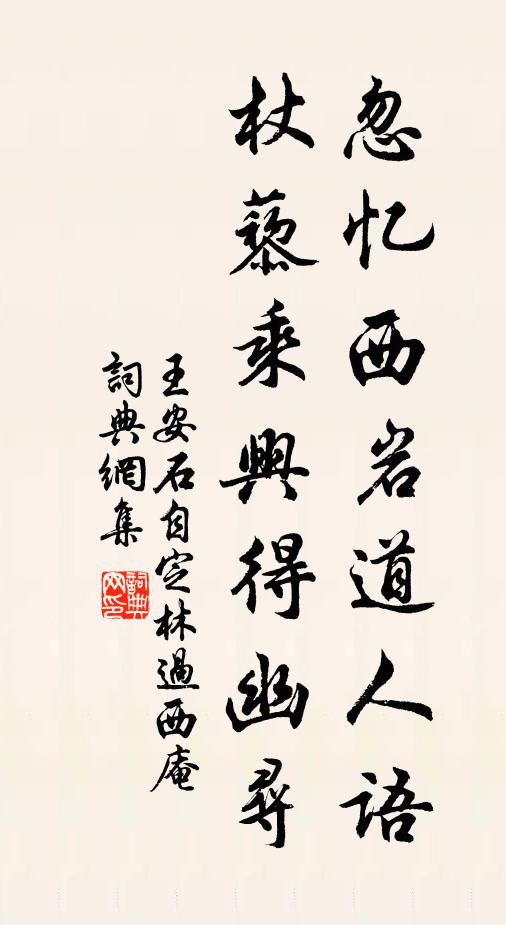 忽忆西岩道人语
杖藜乘興得幽尋
王安石自定林過西庵
詞典網集
詞典網印